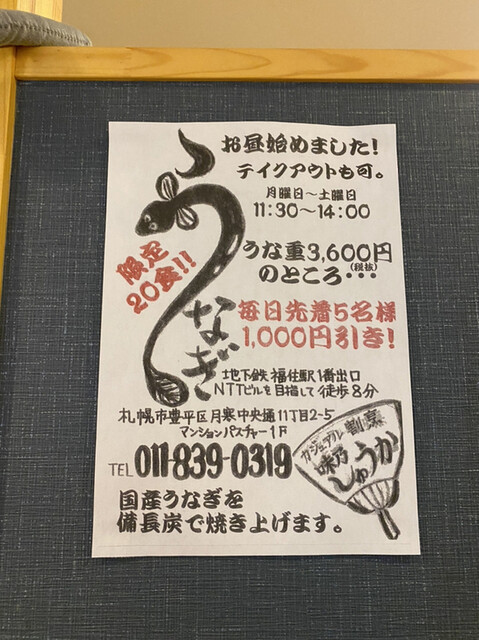 お昼始めました!
テイクアウトも可。
月曜日～土曜日
11:30～14:00
限定
20食!!
うなぎ
うな重3,600円
(税抜)
のところ・・・
毎日先着5名様
1,000円引き!
地下鉄 福住駅1番出口
NTTビルを目指して徒歩8分
札幌市豊平区月寒中央通11丁目2-5
マンションパスチャー1F
TEL 011-839-0319
カジュアル割烹
味乃
しゅうか
国産うなぎを
備長炭で焼き上げます。